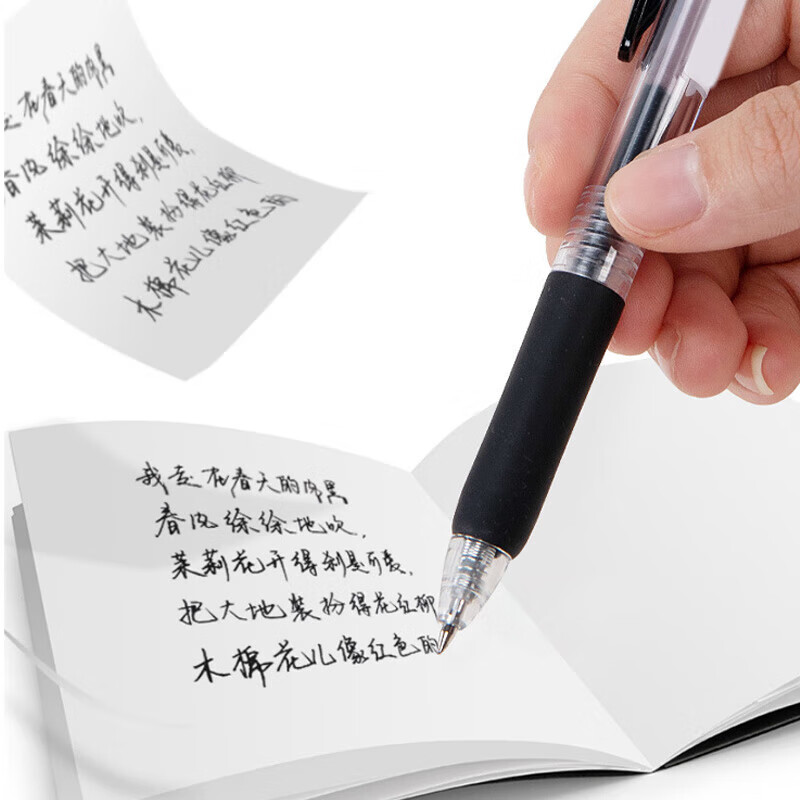 走在春天的内黑
春风徐徐地吹，
茉莉花开得刹是可爱，
把大地装扮得花红柳
木棉花儿像红色的
我走在春天的内黑
春风徐徐地吹，
茉莉花开得刹是可爱，
把大地装扮得花红柳
木棉花儿像红色的